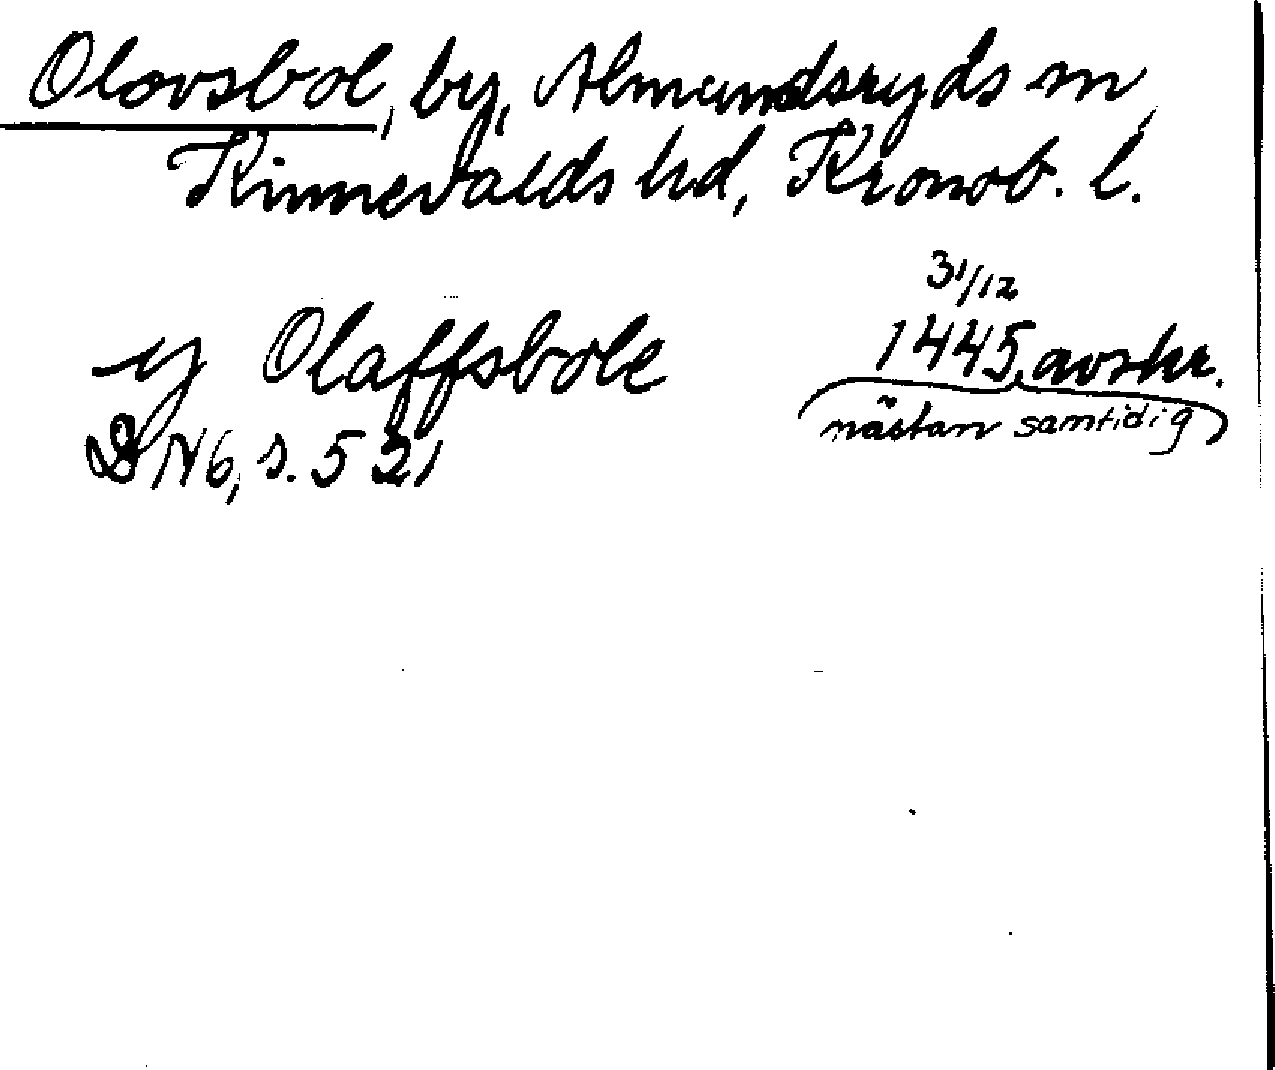 Olovsbol, by, Almundsryds sn,
Kinnevalds hd, Kronob. l.
31/12
y Olaffsbole 1445, avskr.
nästan samtidig
DN 6, s. 521